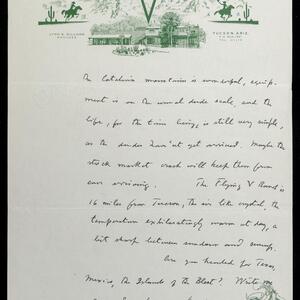 V
LYNN B. GILLHAM
MANAGER
TUCSON, ARIZ.
the Catalina mountains is wonderful, equip-
ment is on the usual dude scale, and the
life, for the time being, is still very simple,
as the dudes haven't yet arrived. Maybe the
stock market crash will keep them from
ever arriving. The Flying V Ranch is
16 miles from Tucson, the air like crystal, the
temperature exhilaratingly warm at day, a
bit sharp between sundown and sunup.
Are you headed for Texas,
Mexico, the Islands of the Blest? Write me